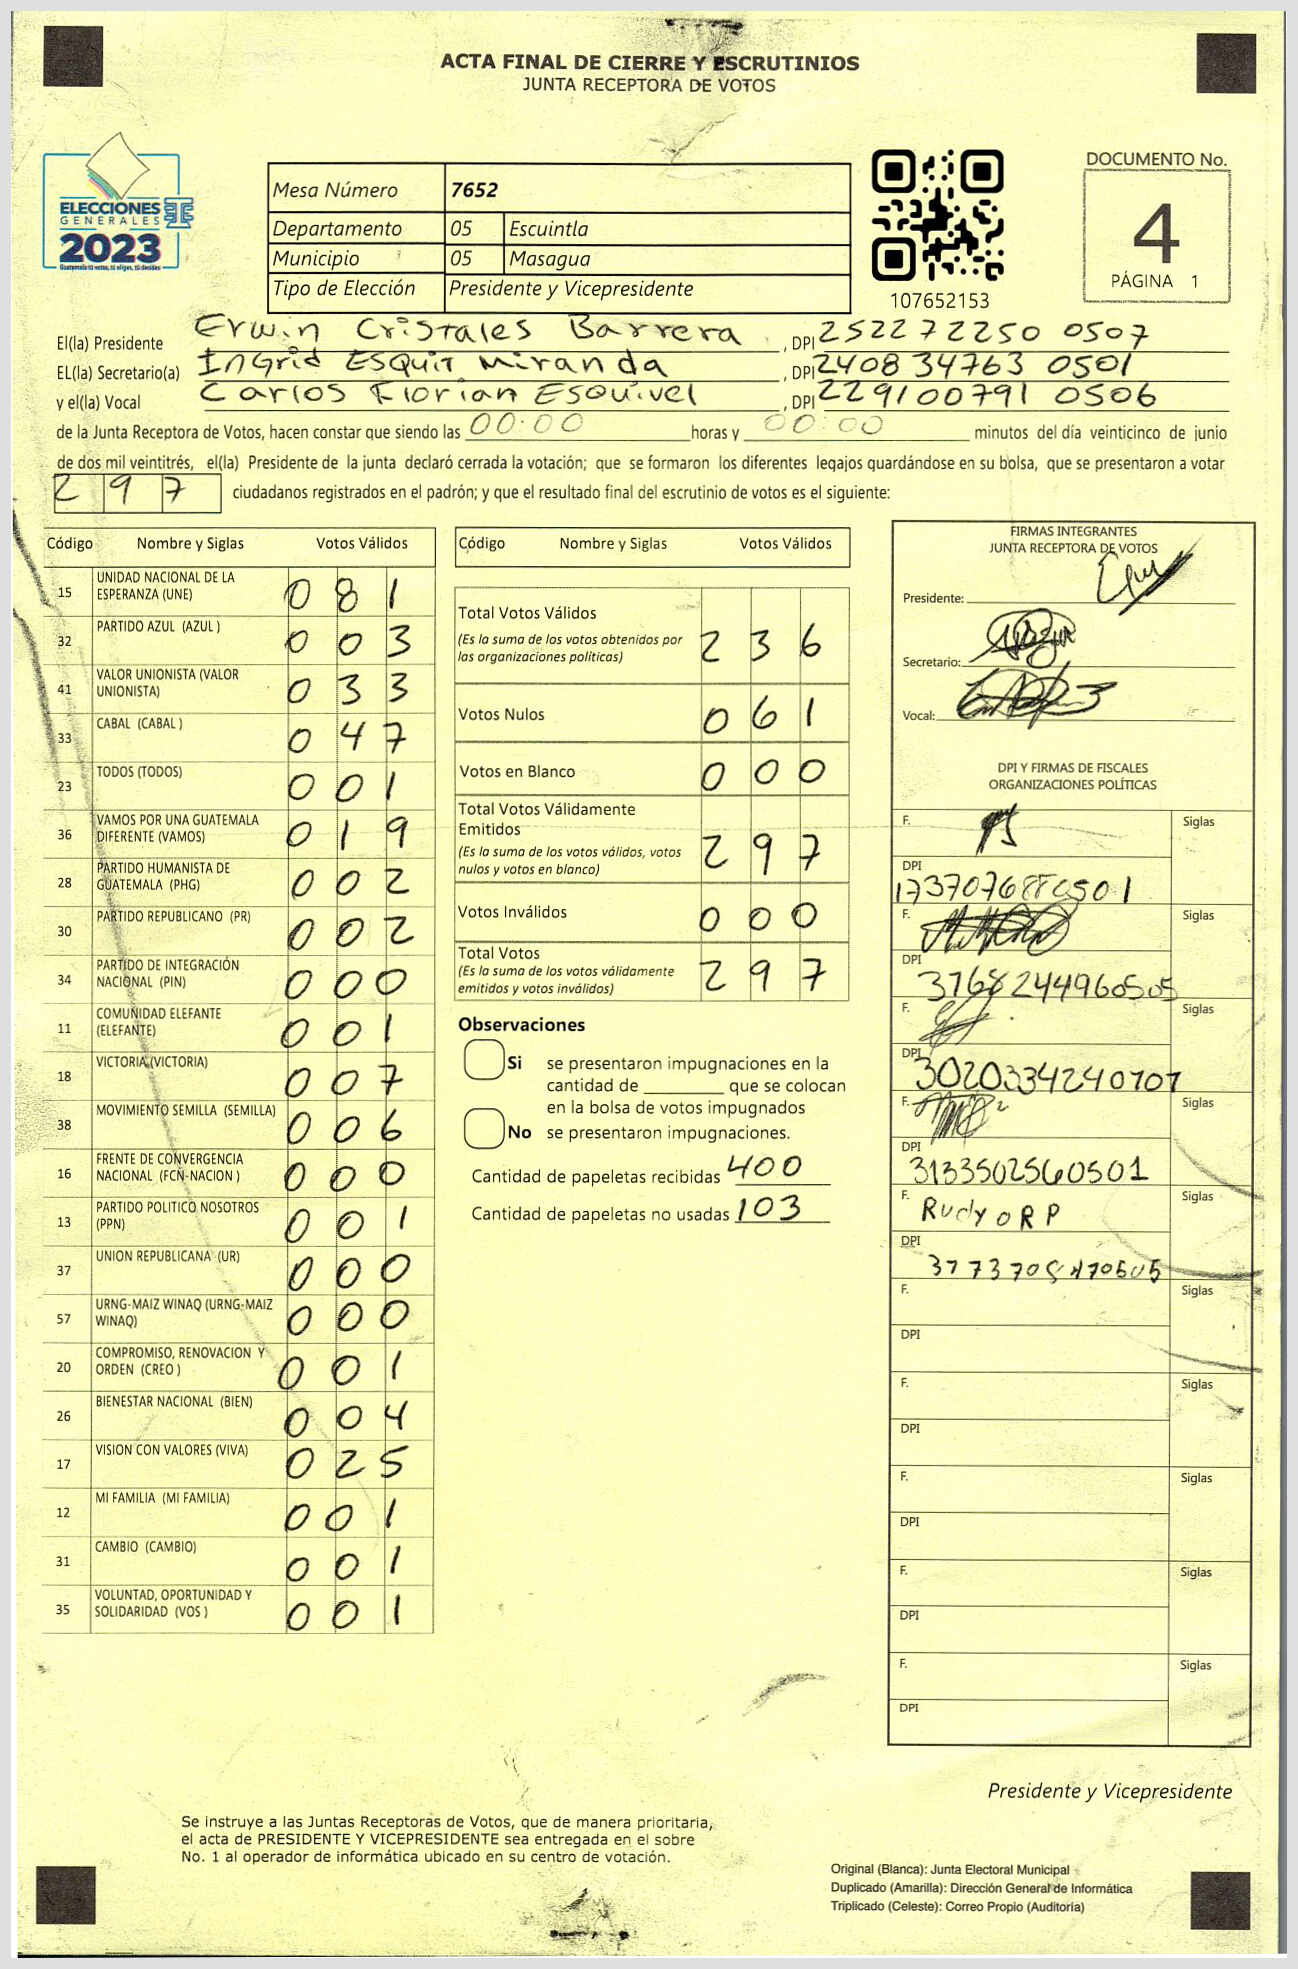 ACTA FINAL DE CIERRE Y ESCRUTINIOS
JUNTA RECEPTORA DE VOTOS
ELECCIONES
GENERALES
2023
Guatemala tú votas, tú eliges, tú decides
Mesa Número 7652
Departamento 05 Escuintla
Municipio 05 Masagua
Tipo de Elección Presidente y Vicepresidente
107652153
DOCUMENTO No.
4
PÁGINA 1
El(la) Presidente Erwin Cristales Barrera, DPI 252272250 0507
EL(la) Secretario(a) Ingrid Esquit Miranda, DPI 240834763 0501
y el(la) Vocal Carlos Florian Esquivel, DPI 229100791 0506
de la Junta Receptora de Votos, hacen constar que siendo las 00:00 horas y 00:00 minutos del día veinticinco de junio
de dos mil veintitrés, el(la) Presidente de la junta declaró cerrada la votación; que se formaron los diferentes legajos guardándose en su bolsa, que se presentaron a votar
297 ciudadanos registrados en el padrón; y que el resultado final del escrutinio de votos es el siguiente:
Código Nombre y Siglas Votos Válidos
15 UNIDAD NACIONAL DE LA ESPERANZA (UNE) 081
32 PARTIDO AZUL (AZUL ) 003
41 VALOR UNIONISTA (VALOR UNIONISTA) 033
33 CABAL (CABAL ) 047
23 TODOS (TODOS) 001
36 VAMOS POR UNA GUATEMALA DIFERENTE (VAMOS) 019
28 PARTIDO HUMANISTA DE GUATEMALA (PHG) 002
30 PARTIDO REPUBLICANO (PR) 002
34 PARTIDO DE INTEGRACIÓN NACIONAL (PIN) 000
11 COMUNIDAD ELEFANTE (ELEFANTE) 001
18 VICTORIA (VICTORIA) 007
38 MOVIMIENTO SEMILLA (SEMILLA) 006
16 FRENTE DE CONVERGENCIA NACIONAL (FCN-NACION ) 000
13 PARTIDO POLITICO NOSOTROS (PPN) 001
37 UNION REPUBLICANA (UR) 000
57 URNG-MAIZ WINAQ (URNG-MAIZ WINAQ) 000
20 COMPROMISO, RENOVACION Y ORDEN (CREO ) 001
26 BIENESTAR NACIONAL (BIEN) 004
17 VISION CON VALORES (VIVA) 025
12 MI FAMILIA (MI FAMILIA) 001
31 CAMBIO (CAMBIO) 001
35 VOLUNTAD, OPORTUNIDAD Y SOLIDARIDAD (VOS ) 001
Código Nombre y Siglas Votos Válidos
Total Votos Válidos 236
(Es la suma de los votos obtenidos por
las organizaciones políticas)
Votos Nulos 061
Votos en Blanco 000
Total Votos Válidamente
Emitidos 297
(Es la suma de los votos válidos, votos
nulos y votos en blanco)
Votos Inválidos 000
Total Votos 297
(Es la suma de los votos válidamente
emitidos y votos inválidos)
Observaciones
Si se presentaron impugnaciones en la
cantidad de ________ que se colocan
en la bolsa de votos impugnados
No se presentaron impugnaciones.
Cantidad de papeletas recibidas 400
Cantidad de papeletas no usadas 103
FIRMAS INTEGRANTES
JUNTA RECEPTORA DE VOTOS
Presidente:
Secretario:
Vocal:
DPI Y FIRMAS DE FISCALES
ORGANIZACIONES POLÍTICAS
F. Siglas
DPI
F. Siglas
DPI
F. Siglas
DPI 3020334240707
F. Siglas
DPI 3133502560501
F. Rudy ORP Siglas
DPI
F. Siglas
DPI
F. Siglas
DPI
F. Siglas
DPI
F. Siglas
DPI
F. Siglas
DPI
Presidente y Vicepresidente
Se instruye a las Juntas Receptoras de Votos, que de manera prioritaria,
el acta de PRESIDENTE Y VICEPRESIDENTE sea entregada en el sobre
No. 1 al operador de informática ubicado en su centro de votación.
Original (Blanca): Junta Electoral Municipal
Duplicado (Amarilla): Dirección General de Informática
Triplicado (Celeste): Correo Propio (Auditoría)